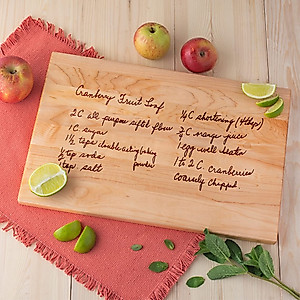 Cranberry Fruit Loaf
2 C all purpose sift flour
1 C sugar
1½ tsps double acting baking powder
½ tsp soda
1 tsp salt
¼ C shortening (4 tbsp)
¾ C orange juice
1 egg well beaten
1 to 2 C. cranberries
coarsely chopped.